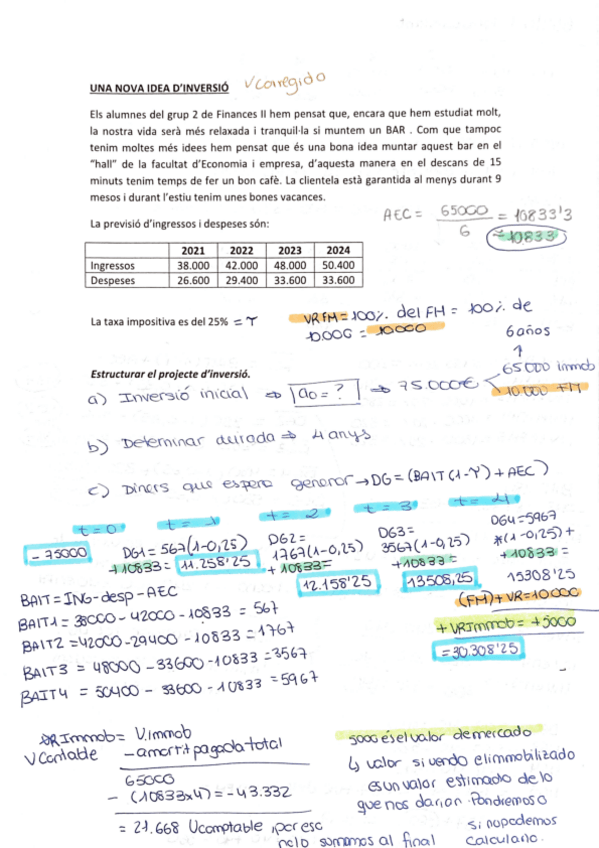 UNA NOVA IDEA D'INVERSIÓ V corregido
Els alumnes del grup 2 de Finances II hem pensat que, encara que hem estudiat molt,
la nostra vida serà més relaxada i tranquil·la si muntem un BAR . Com que tampoc
tenim moltes més idees hem pensat que és una bona idea muntar aquest bar en el
"hall" de la facultat d'Economia i empresa, d'aquesta manera en el descans de 15
minuts tenim temps de fer un bon cafè. La clientela està garantida al menys durant 9
mesos i durant l'estiu tenim unes bones vacances.
AEC = 65000 / 6 = 10833'3
≈ 10833
La previsió d'ingressos i despeses són:
2021 2022 2023 2024
Ingressos 38.000 42.000 48.000 50.400
Despeses 26.600 29.400 33.600 33.600
La taxa impositiva es del 25% = T
VR FM = 100%. del FM = 100%. de
10.000 = 10000
6 años
↑
Estructurar el projecte d'inversió.
65000 immob
a) Inversió inicial ⇒ a0 = ? ⇒ 75.000€
10000 FM
b) Determinar durada ⇒ 4 anys
c) Diners que espero generar → DG = (BAIT (1-T) + AEC)
t = 0 t = 1 t = 2 t = 3 t = 4
-75000
DG1 = 567(1-0,25)
+10833 = 11.258'25
DG2 =
1767(1-0,25)
+ 10833 =
12.158'25
DG3 =
3567(1-0,25)
+10833 =
13508,25
DG4 = 5967
*(1-0,25) +
+10833 =
15308'25
(FM) + VR = 10000
+ VRImmob = +5000
= 30.308'25
BAIT = ING - desp - AEC
BAIT1 = 38000 - 42000 - 10833 = 567
BAIT2 = 42000 - 29400 - 10833 = 1767
BAIT3 = 48000 - 33600 - 10833 = 3567
BAIT4 = 50400 - 33600 - 10833 = 5967
VR Immob = V.immob
V Contable - amortit pagada total
65000
- (10833x4) = -43.332
= 21.668 V comptable, per esc
no lo sumamos al final
5000 és el valor de mercado
↳ valor si vendo el immobilizado
es un valor estimado de lo
que nos darian. Pondremos 0
si no podemos
calcularlo.